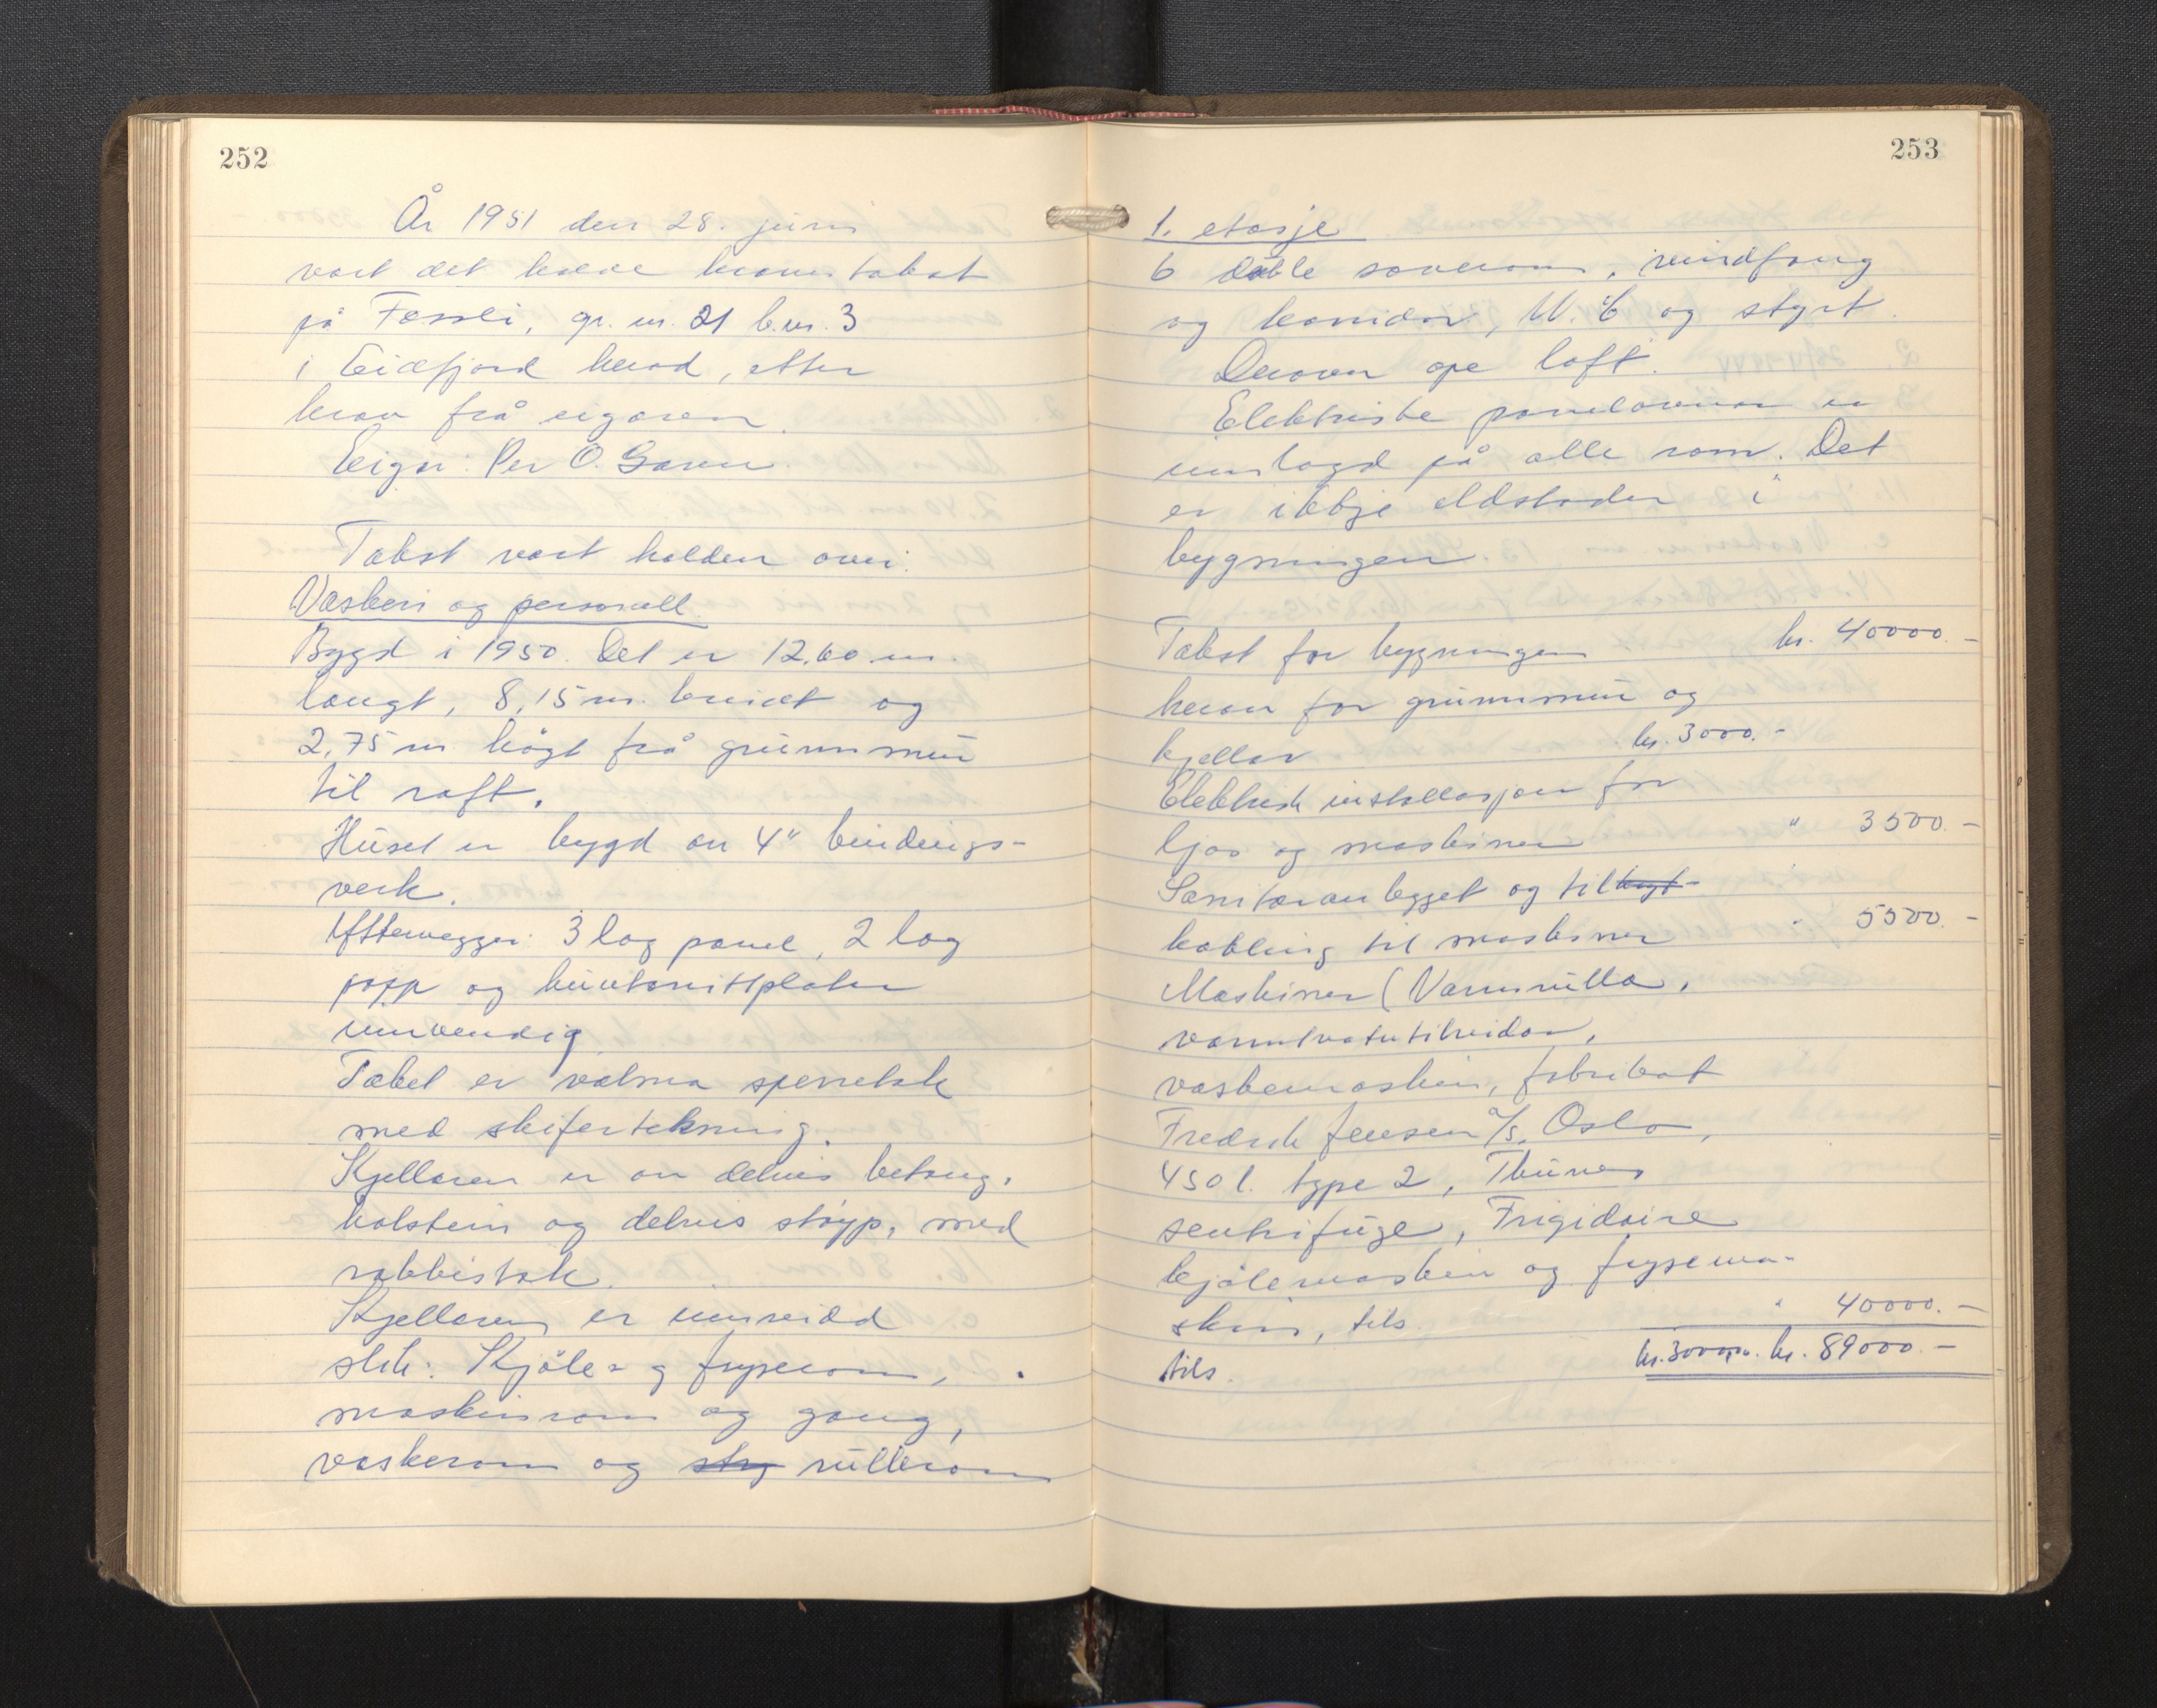 252
År 1951 den 28. juni
vart det halde kravstakst
på Fossli, gr. nr. 21 b.nr. 3
i Eidfjord herad, etter
krav frå eigaren.
Eigar: Per O. Garen.
Takst vart halden over:
Vaskeri og personell.
Bygd i 1950. Det er 12,60 m.
langt, 8,15 m. breidt og
2,75 m. högt frå grunnmur
til raft.
Huset er bygd av 4" bindings-
verk.
Yttervegger: 3 lag panel, 2 lag
papp og huntonittplater
innvendig
Taket er valma sperretak
med skifertekning.
Kjellaren er av delvis betong,
holstein og delvis støyp, med
rabbistak.
Kjellaren er innreidd
slik: Kjöle- og fryserom,
maskinrom og gang,
vaskerom og stry rullerom
253
1. etasje
6 doble soverom, vindfang
og korridor, W.C. og styrt.
Derover ope loft.
Elektriske panelovnar er
innlagd på alle rom. Det
er ikkje eldstader i
bygningen.
Takst for bygningen kr. 40000.-
herav for grunnmur og
kjellar kr. 3000.-
Elektrisk installasjon for
ljos og maskiner " 3500.-
Sanitæranlegget og tilknyt-
kobling til maskiner " 5500.-
Maskiner (Varmrulla,
varmtvatntilreidar,
vaskemaskin, fabrikat
Fredrik Jensen A/S, Oslo,
450 l. type 2, Thunes
sentrifuge, Frigidaire
kjölemaskin og frysema-
skin, tils. " 40000.-
tils. kr. 3000.- kr. 89000.-